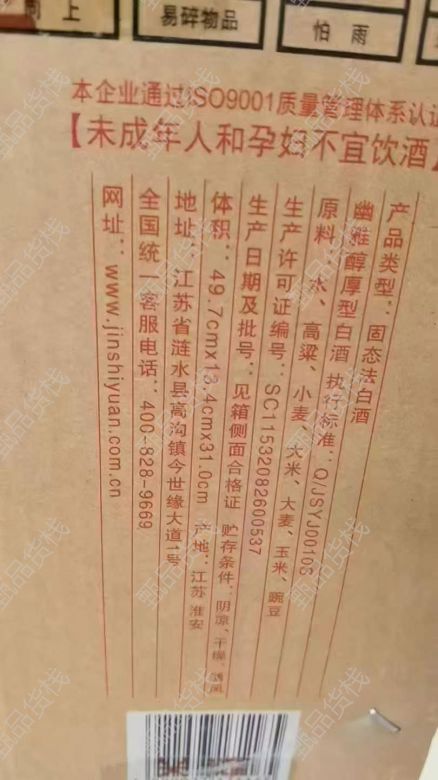 向上
易碎物品
怕雨
本企业通过ISO9001质量管理体系认证
【未成年人和孕妇不宜饮酒】
产品类型：固态法白酒
幽雅醇厚型白酒 执行标准：Q/JSYJ0010S
原料：水、高粱、小麦、大米、大麦、玉米、豌豆
生产许可证编号：SC11532082600537
生产日期及批号：见箱侧面合格证 贮存条件：阴凉、干燥、通风
体积：49.7cmx13.4cmx31.0cm 产地：江苏 淮安
地址：江苏省涟水县高沟镇今世缘大道1号
全国统一客服电话：400-828-9669
网址：www.jinshiyuan.com.cn
甄品货栈